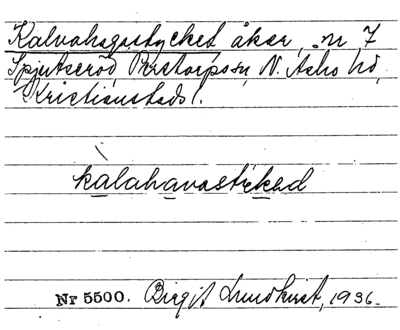 Kalvahagastycket åker, nr 7
Spjutseröd, Perstorps sn, N. Åsbo hd,
Kristianstads l.
kalahavastikkad
Nr 5500. Birgit Lundkvist, 1936.